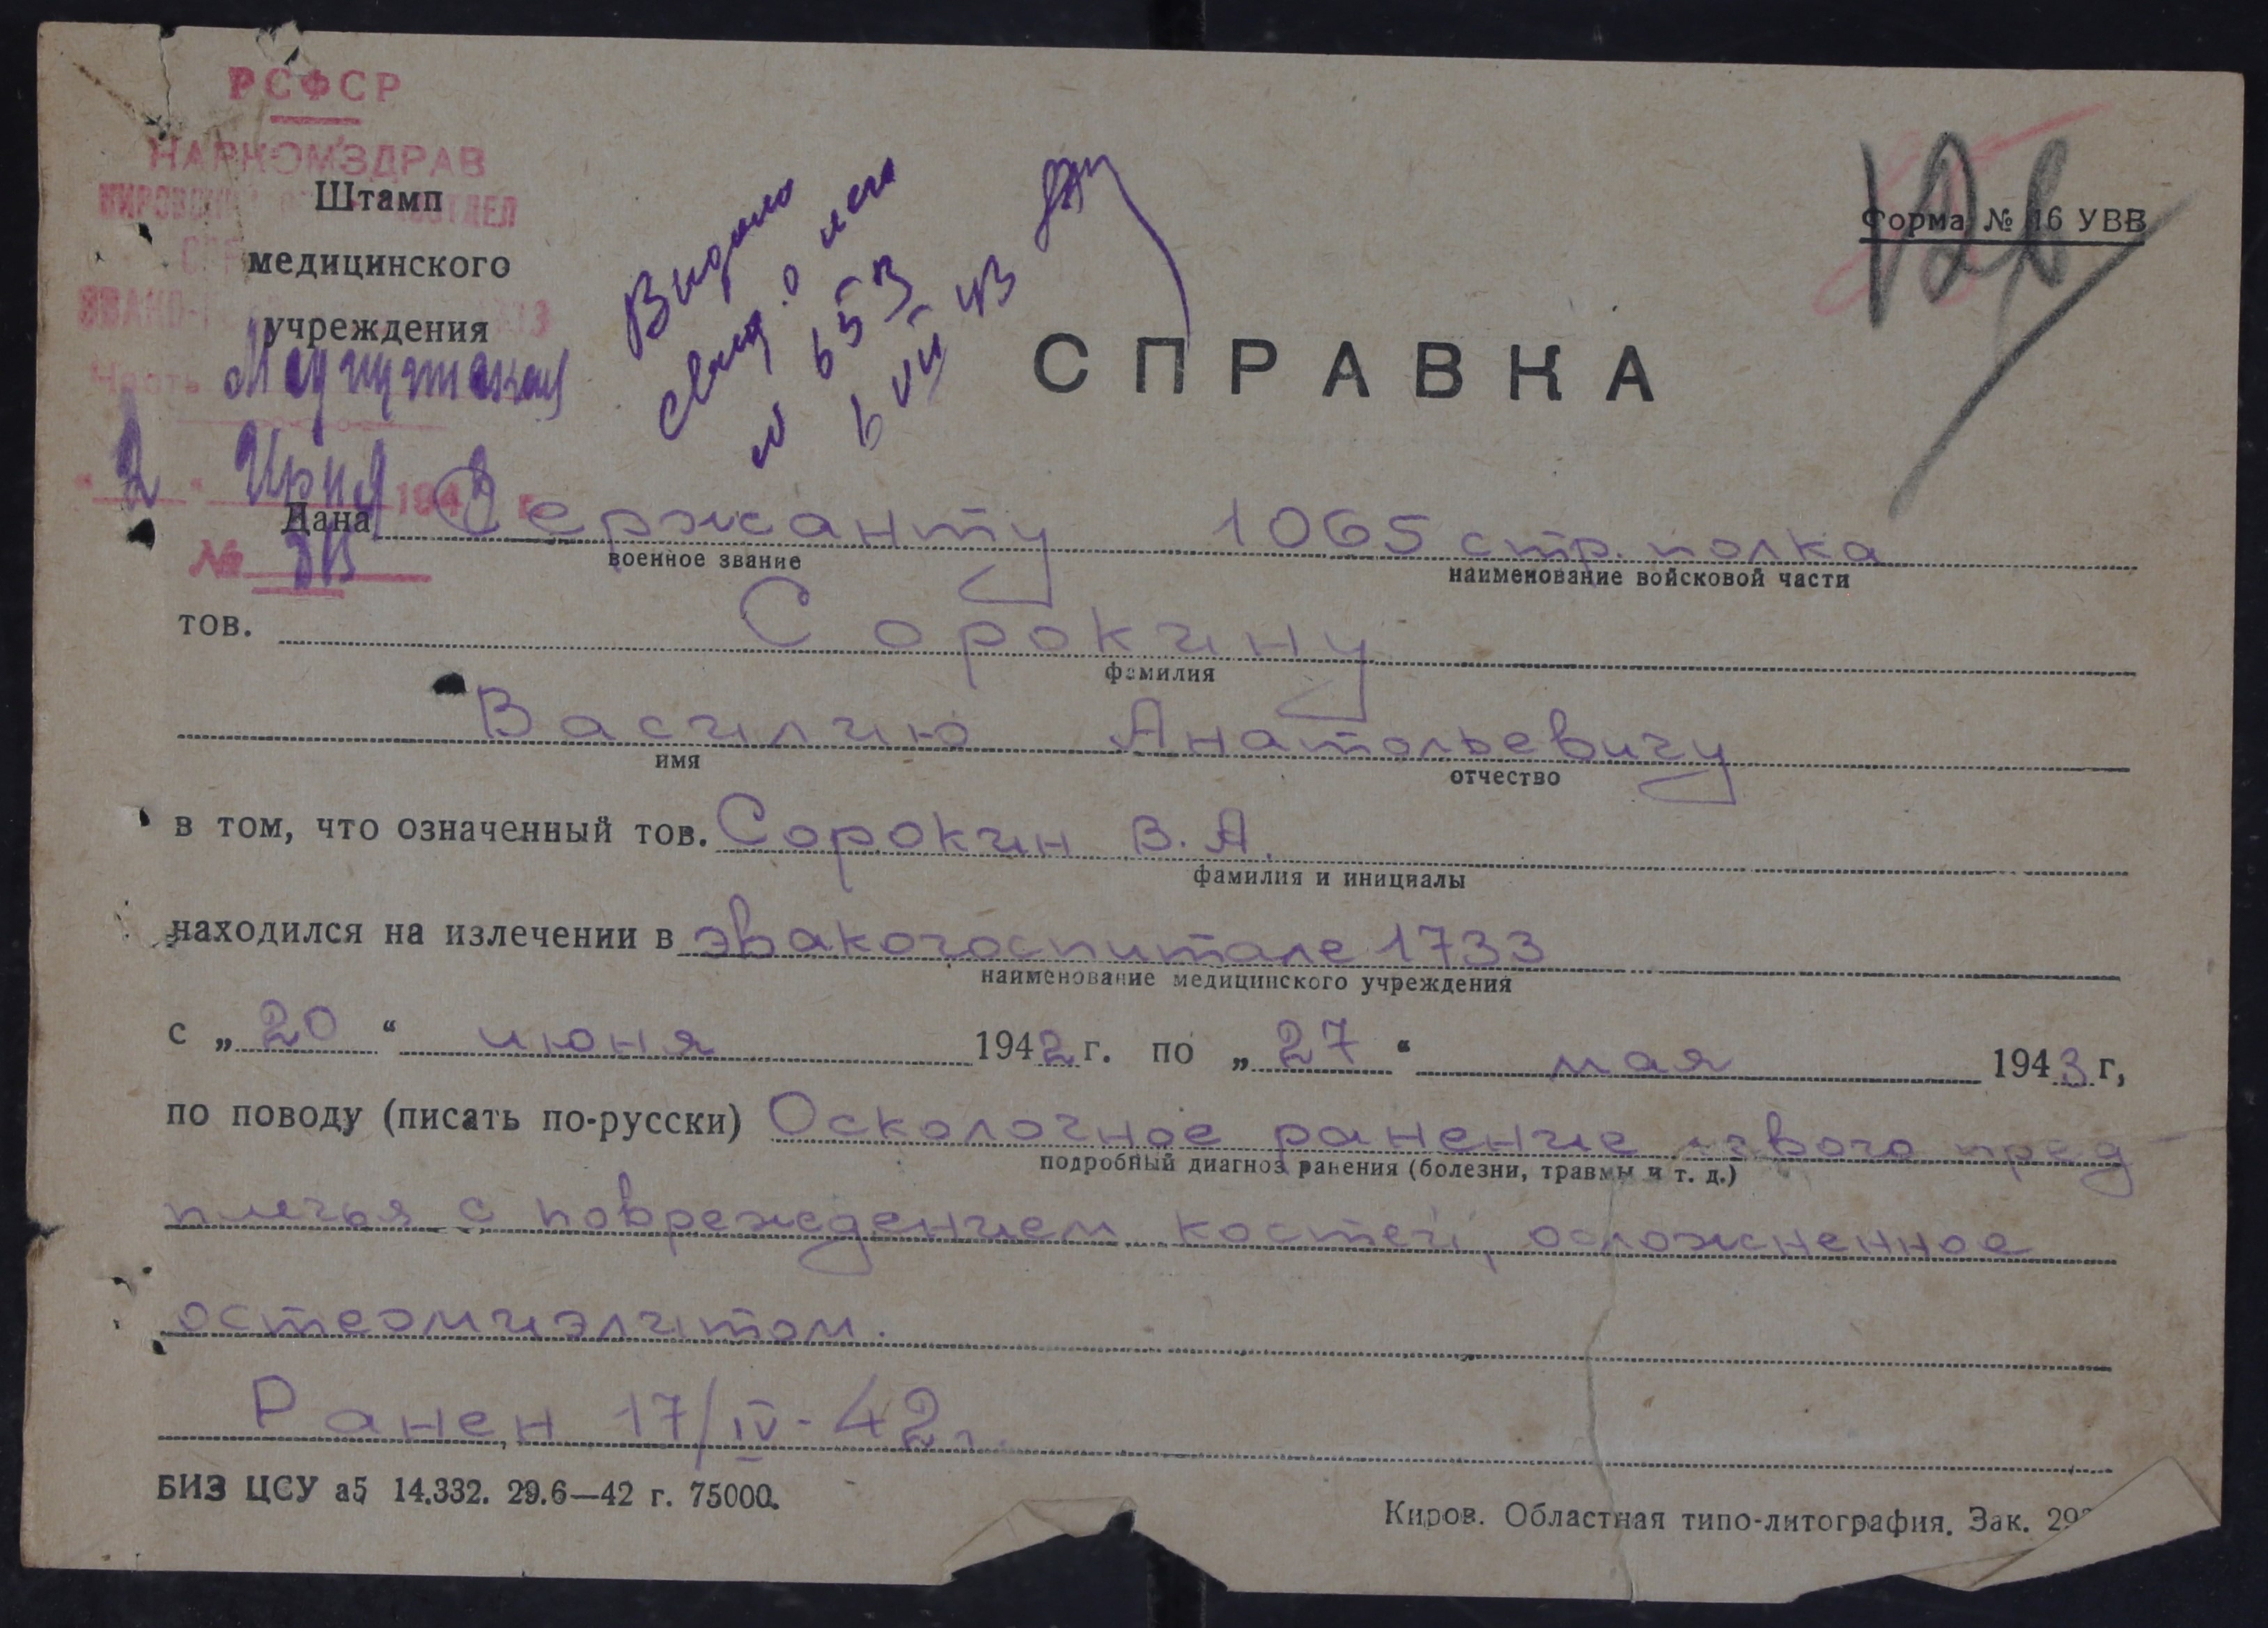 РСФСР
НАРКОМЗДРАВ
Штамп
медицинского
учреждения
Часть
"2" 194 г.
№
Выдано
свид. о
№ 653
6 VII 43
Форма № 16 УВВ
СПРАВКА
Дана Сержанту 1065 стр. полка
военное звание наименование войсковой части
тов. Сорокину
фамилия
Василию Анатольевичу
имя отчество
в том, что означенный тов. Сорокин В. А.
фамилия и инициалы
находился на излечении в эвакогоспитале 1733
наименование медицинского учреждения
с „20“ июня 1942 г. по „27“ мая 1943 г,
по поводу (писать по-русски) Осколочное ранение левого пред
подробный диагноз ранения (болезни, травмы и т. д.)
плечья с повреждением костей, осложненное
остеомиэлитом.
Ранен 17/IV-42г.
БИЗ ЦСУ а5 14.332. 29.6—42 г. 75000.
Киров. Областная типо-литография. Зак.